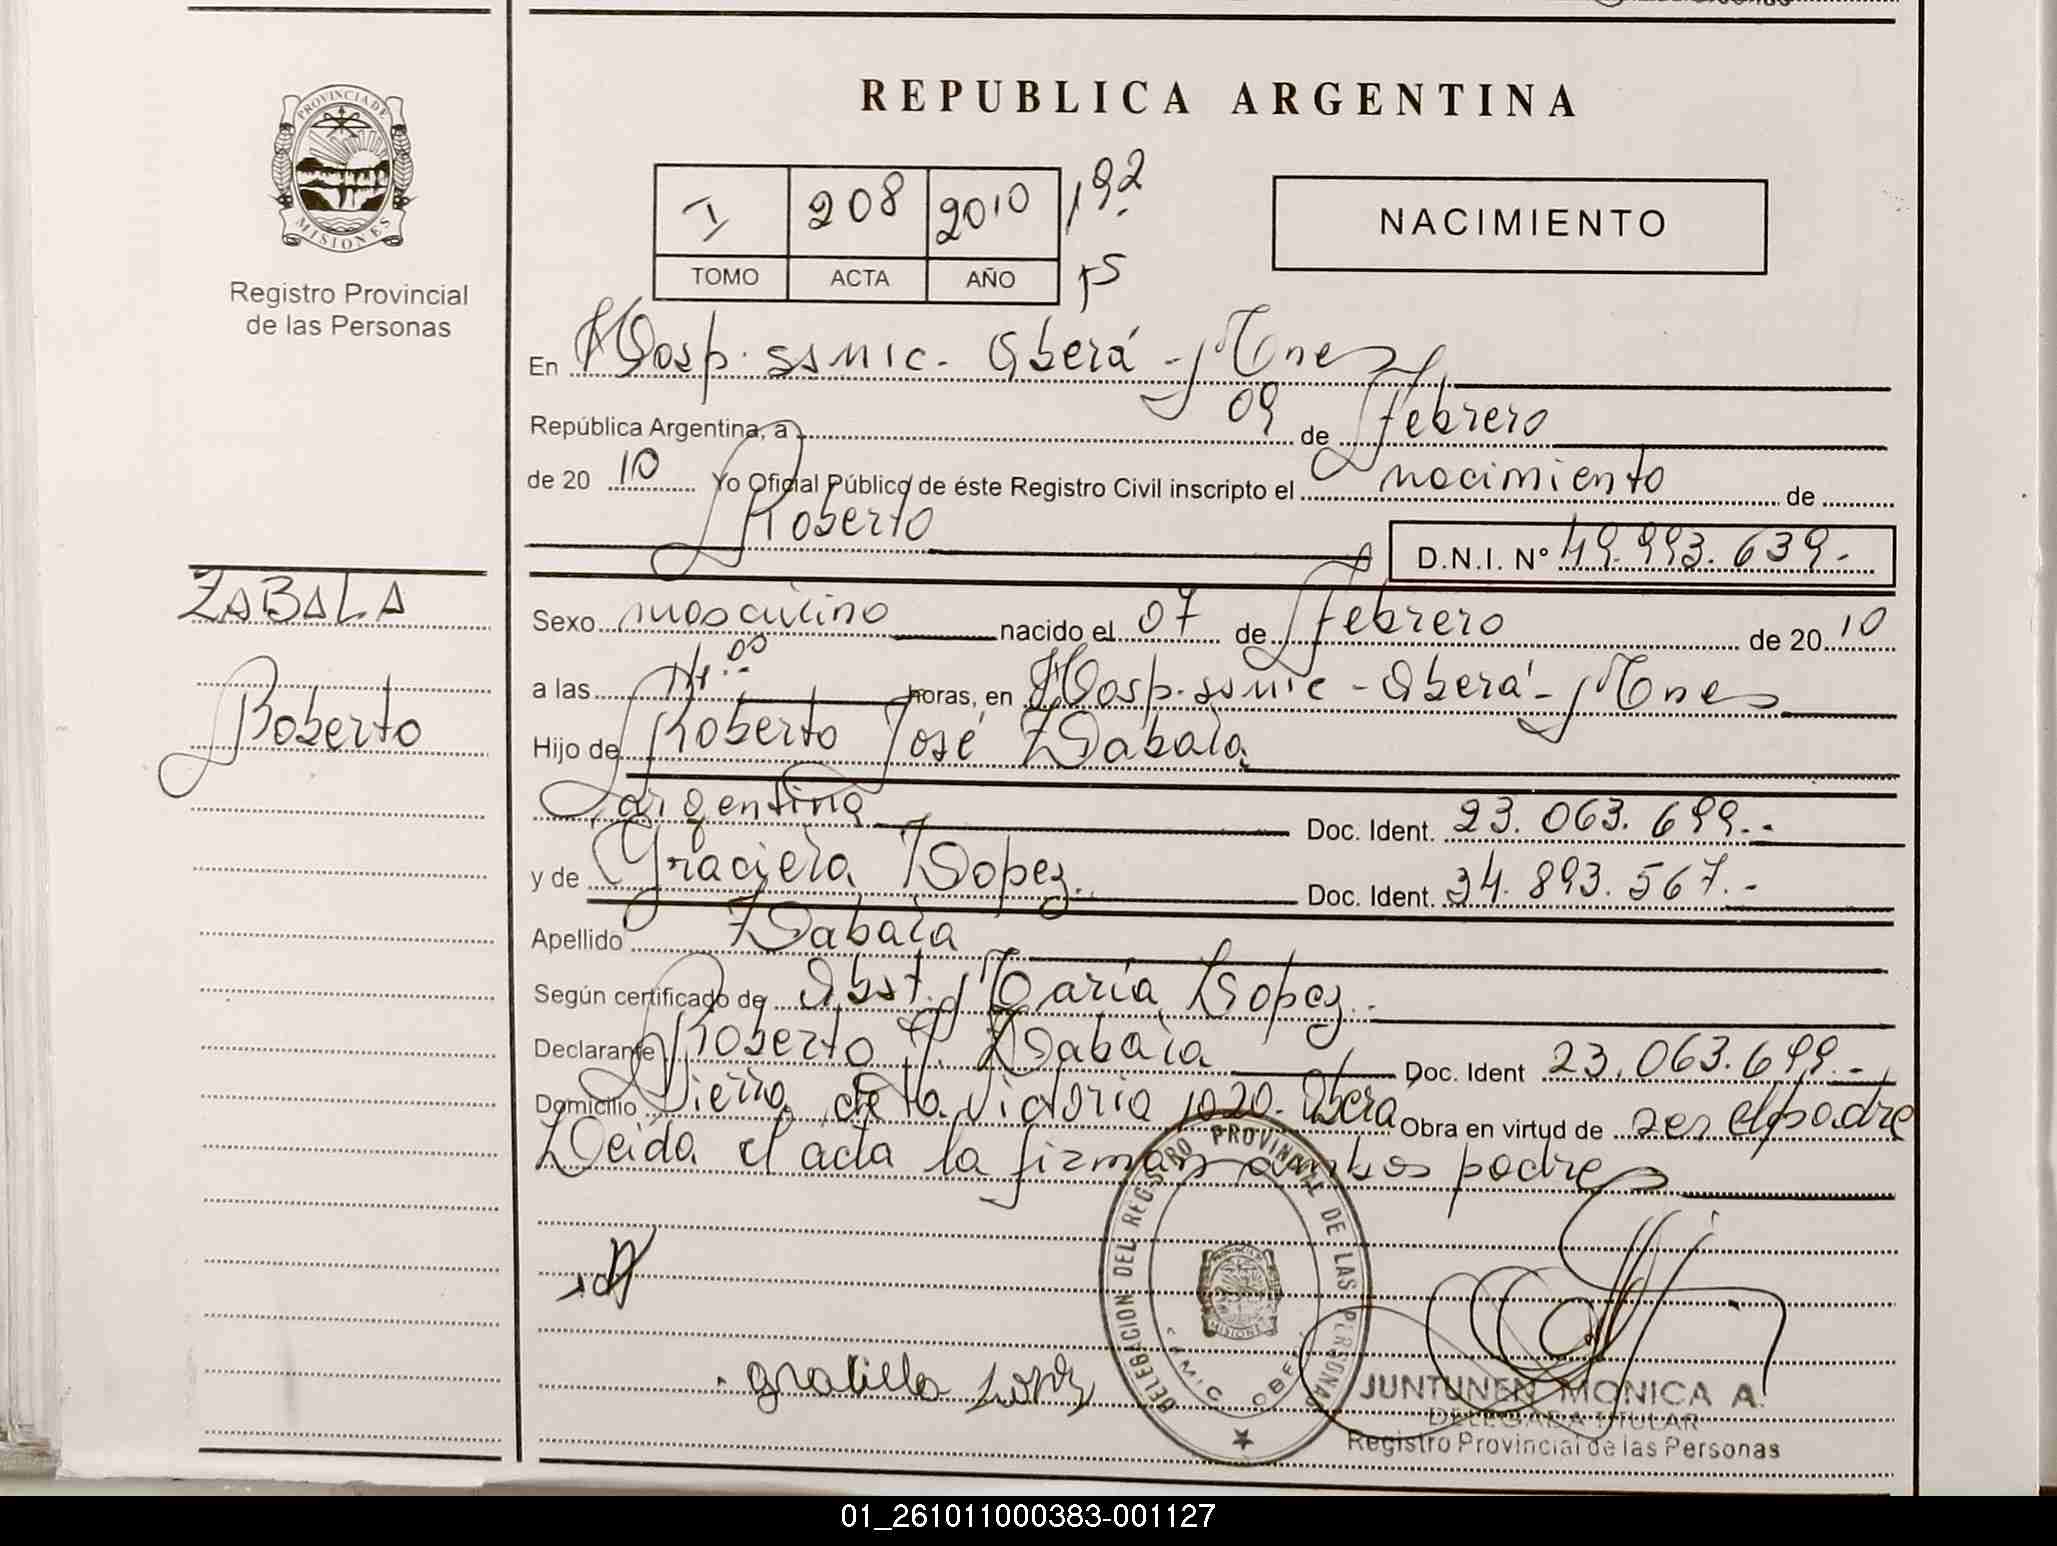 PROVINCIA DE
MISIONES
Registro Provincial
de las Personas
ZABALA
Roberto
REPUBLICA ARGENTINA
I 208 2010 192
TOMO ACTA AÑO 15
NACIMIENTO
En Hosp. SSMIC. Oberá - Mnes
República Argentina, a 09 de febrero
de 20 10 Yo Oficial Público de éste Registro Civil inscripto el nacimiento de
Roberto D.N.I. Nº 49.993.639.-
Sexo masculino nacido el 07 de febrero de 20 10
a las 14:00 horas, en Hosp. SSMIC - Oberá - Mnes
Hijo de Roberto José Zabala
argentina Doc. Ident. 23.063.699.-
y de Graciela Lopez. Doc. Ident. 34.893.567.-
Apellido Zabala
Según certificado de Obst. María Lopez.
Declarante Roberto J. Zabala Doc. Ident 23.063.699.-
Domicilio de la Victoria 1020. Oberá Obra en virtud de ser el padre
Leida el acta la firman ambos padres
DELEGACION DEL REGISTRO PROVINCIAL DE LAS PERSONAS
MISIONES
graciela Lopez
JUNTUNEN MONICA A.
DELEGADA TITULAR
Registro Provincial de las Personas
01_261011000383-001127